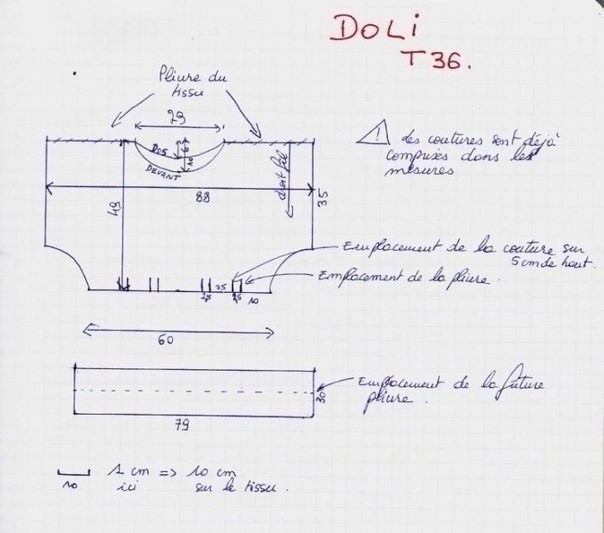 DOLI
T36.
Pliure du
tissu
29
⚠ les coutures sont déjà
comprises dans les
mesures
DOS
6
DEVANT
10
droit fil
88
35
49
Emplacement de la couture sur
5cm de haut.
Emplacement de la pliure.
10
60
Emplacement de la future
pliure.
30
79
1 cm => 10 cm
10 ici sur le tissu.